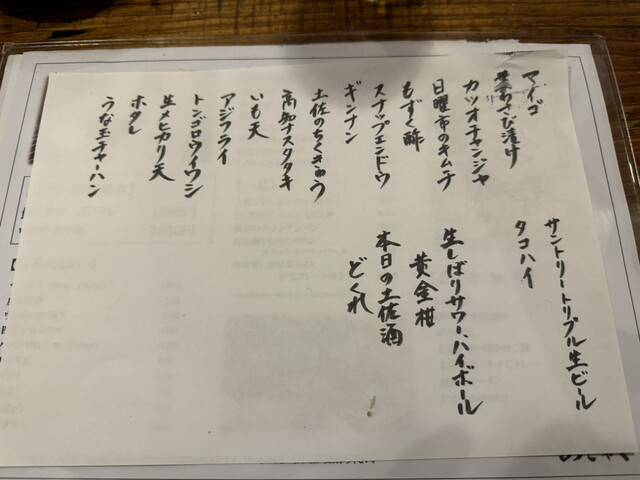 マイゴ
葉わさび漬け
カツオチャンジャ
日曜市のキムチ
もずく酢
スナップエンドウ
ギンナン
土佐のちくきゅう
高知ナスタタキ
いも天
アジフライ
トンゴロウイワシ
生メヒカリ天
ホタレ
うな玉チャーハン
サントリートリプル生ビール
タコハイ
生しぼりサワー、ハイボール
黄金柑
本日の土佐酒
どくれ